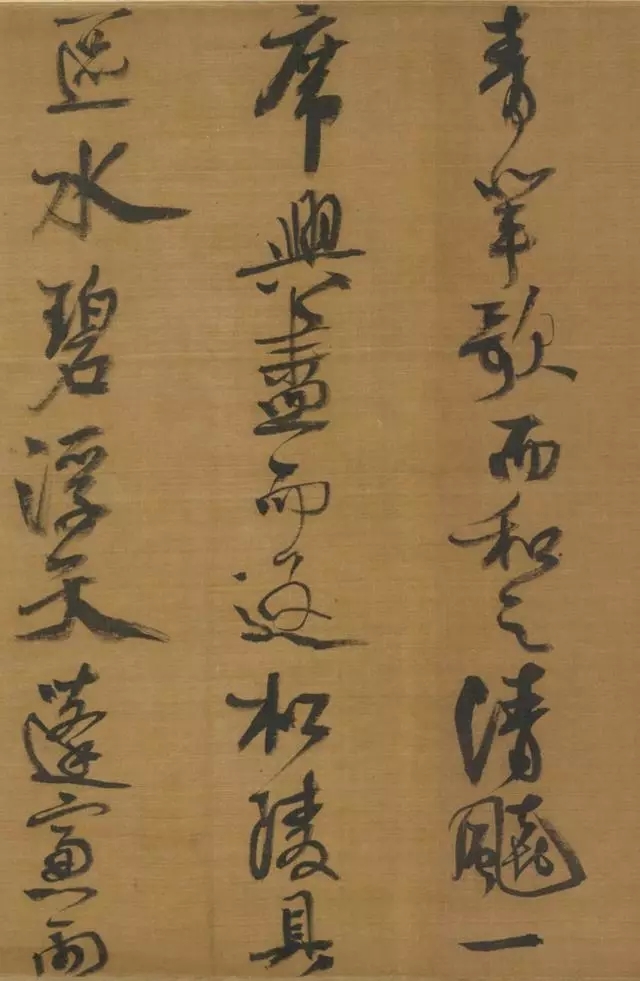 青 歌而和之清飈一
席興盡而返松陵具
區水碧浮天蓬窗雨